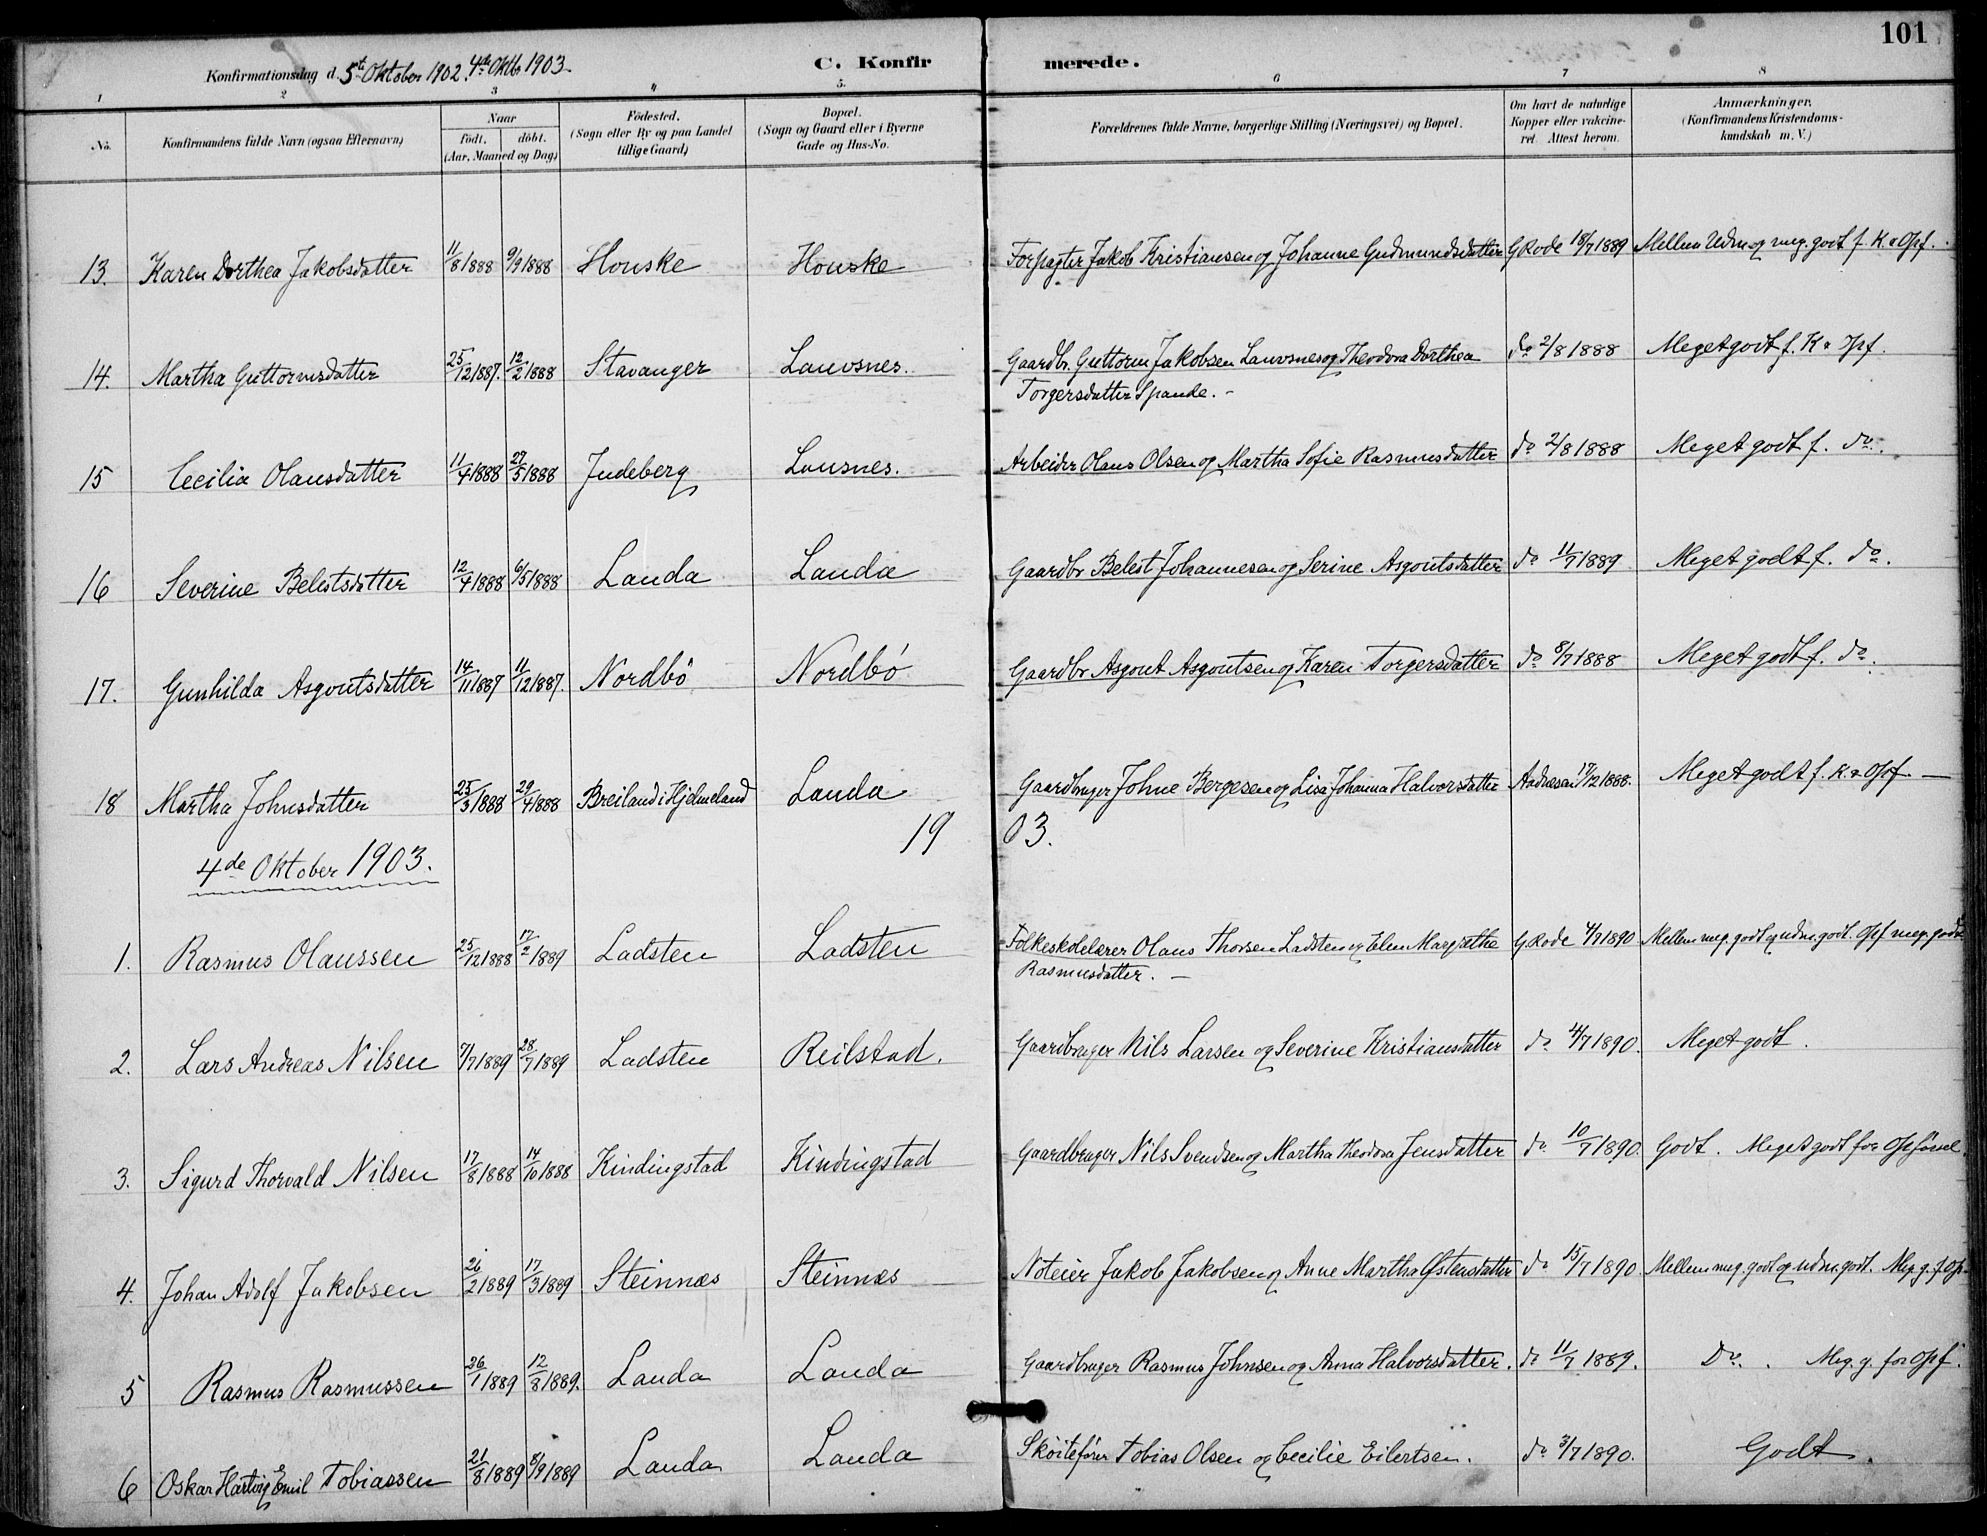 101
Konfirmationsdag d. 5te Oktober 1902. 4de Oktb 1903.
C. Konfirmerede.
1 2 3 4 5. 6 7 8
No.
Konfirmandens fulde Navn (ogsaa Efternavn)
Naar
født. døbt.
(Aar, Maaned og Dag)
Födested.
(Sogn eller By og paa Landet
tillige Gaard)
Bopæl.
(Sogn og Gaard eller i Byerne
Gade og Hus-No.
Forældrenes fulde Navne, borgerlige Stilling (Næringsvei) og Bopæl.
Om havt de naturlige
Kopper eller vakcine-
ret. Attest herom.
Anmærkninger.
(Konfirmandens Kristendoms-
kundskab m. V.)
13. Karen Dorthea Jakobsdatter 11/8 1888 9/9 1888 Houske Houske Forpagter Jakob Kristiansen og Johanne Gudmundsdatter G Rode 18/7 1889 Mellem Udm og meg. godt f. K. o Opf.
14. Martha Guttormsdatter 25/12 1887. 12/2 1888 Stavanger Lauvsnes. Gaardbr. Guttorm Jakobsen Lauvsnes og Theodora Dorthea do 2/8 1888 Meget godt f. K o Opf.
Torgersdatter Spande. –
15 Cecilia Olausdatter 11/4 1888 27/5 1888 Judeberg Lausnes. Arbeider Olaus Olsen og Martha Sofie Rasmusdatter do 2/8 1888 Meget godt f. do.
16 Severine Belestsdatter 12/4 1888 6/5 1888 Landa Landa Gaardbr Belest Johannesen og Serine Asgoutsdatter do 11/7 1889 Meget godt f. do.
17. Gunhilda Asgoutsdatter 14/11 1887 11/12 1887. Nordbö Nordbö Gaardbr Asgout Asgoutsen og Karen Torgersdatter do 8/7 1888 Meget godt f. do.
18 Martha Johnsdatter 25/3 1888 29/4 1888 Breiland i Hjelmeland Landa Gaardbruger Johne Bergesen og Lisa Johanna Halvorsdatter 17/12 1888. Meget godt f. K. o Opf –
1903.
4de Oktober 1903.
1. Rasmus Olaussen 25/12 1888 17/2 1889 Ladsten Ladsten Folkeskolelærer Olaus Thorsen Ladsten og Elen Margrathe G Rode 4/7 1890 Mellem meg. godt og udm. godt. Opf meg. godt
Rasmusdatter. –
2. Lars Andreas Nilsen 7/7 1889 28/7 1889 Ladsten Reilstad. Gaardbruger Nils Larsen og Severine Kristiansdatter do 4/7 1890. Meget godt.
3. Sigurd Thorvald Nilsen 17/8 1888 14/10 1888 Kindingstad Kindingstad Gaardbruger Nils Svendsen og Martha Theodora Jensdatter do 10/7 1890. Godt. Meget godt for Opførsel.
4. Johan Adolf Jakobsen 26/2 1889 17/3 1889 Steinnæs Steinnæs Noteier Jakob Jakobsen og Anne Martha Østensdatter do 15/7 1890. Mellem meg. godt og udm. godt. Meg. g. f Opf.
5 Rasmus Rasmussen 26/1 1889 12/8 1889. Landa Landa Gaardbruger Rasmus Johnsen og Anna Halvorsdatter. do 11/7 1889. Do. Meg. g. for Opf.
6 Oskar Hartvig Emil Tobiassen 21/8 1889 8/9 1889 Landa Landa Skøitefører Tobias Olsen og Cecilie Eilertsen. do 3/7 1890. Godt.